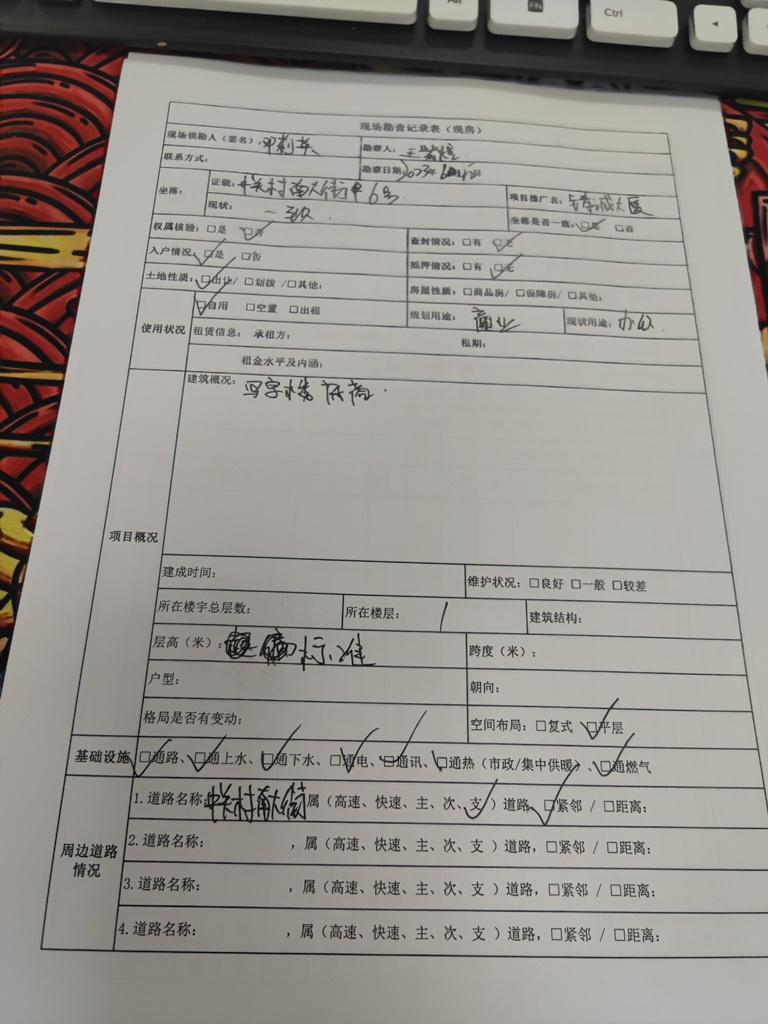 Alt
FN
Ctrl
现场勘查记录表（现房）
现场领勘人（签名）： 勘察人：
联系方式： 勘察日期：2023年
坐落： 证载：中关村南大街甲6号 项目推广名：大厦
现状：一致 坐落是否一致：☑是 □否
权属核验：□是 ☑否 查封情况：□有 ☑无
入户情况：☑是 □否 抵押情况：□有 ☑无
土地性质：☑出让/ □划拨 /□其他： 房屋性质：□商品房/ □保障房/ □其他：
使用状况 ☑自用 □空置 □出租 规划用途：商业 现状用途：办公
租赁信息： 承租方： 租期：
租金水平及内涵：
项目概况 建筑概况：写字楼
建成时间： 维护状况：□良好 □一般 □较差
所在楼宇总层数： 所在楼层：1 建筑结构：
层高（米）：标准 跨度（米）：
户型： 朝向：
格局是否有变动： 空间布局：□复式 ☑平层
基础设施 ☑通路、☑通上水、☑通下水、☑通电、☑通讯、□通热（市政/集中供暖）、☑通燃气
周边道路情况 1.道路名称：中关村南大街属（高速、快速、主、次、支✓）道路，☑紧邻 / □距离：
2.道路名称： ，属（高速、快速、主、次、支 ）道路，□紧邻 / □距离：
3.道路名称： ，属（高速、快速、主、次、支 ）道路，□紧邻 / □距离：
4.道路名称： ，属（高速、快速、主、次、支 ）道路，□紧邻 / □距离：